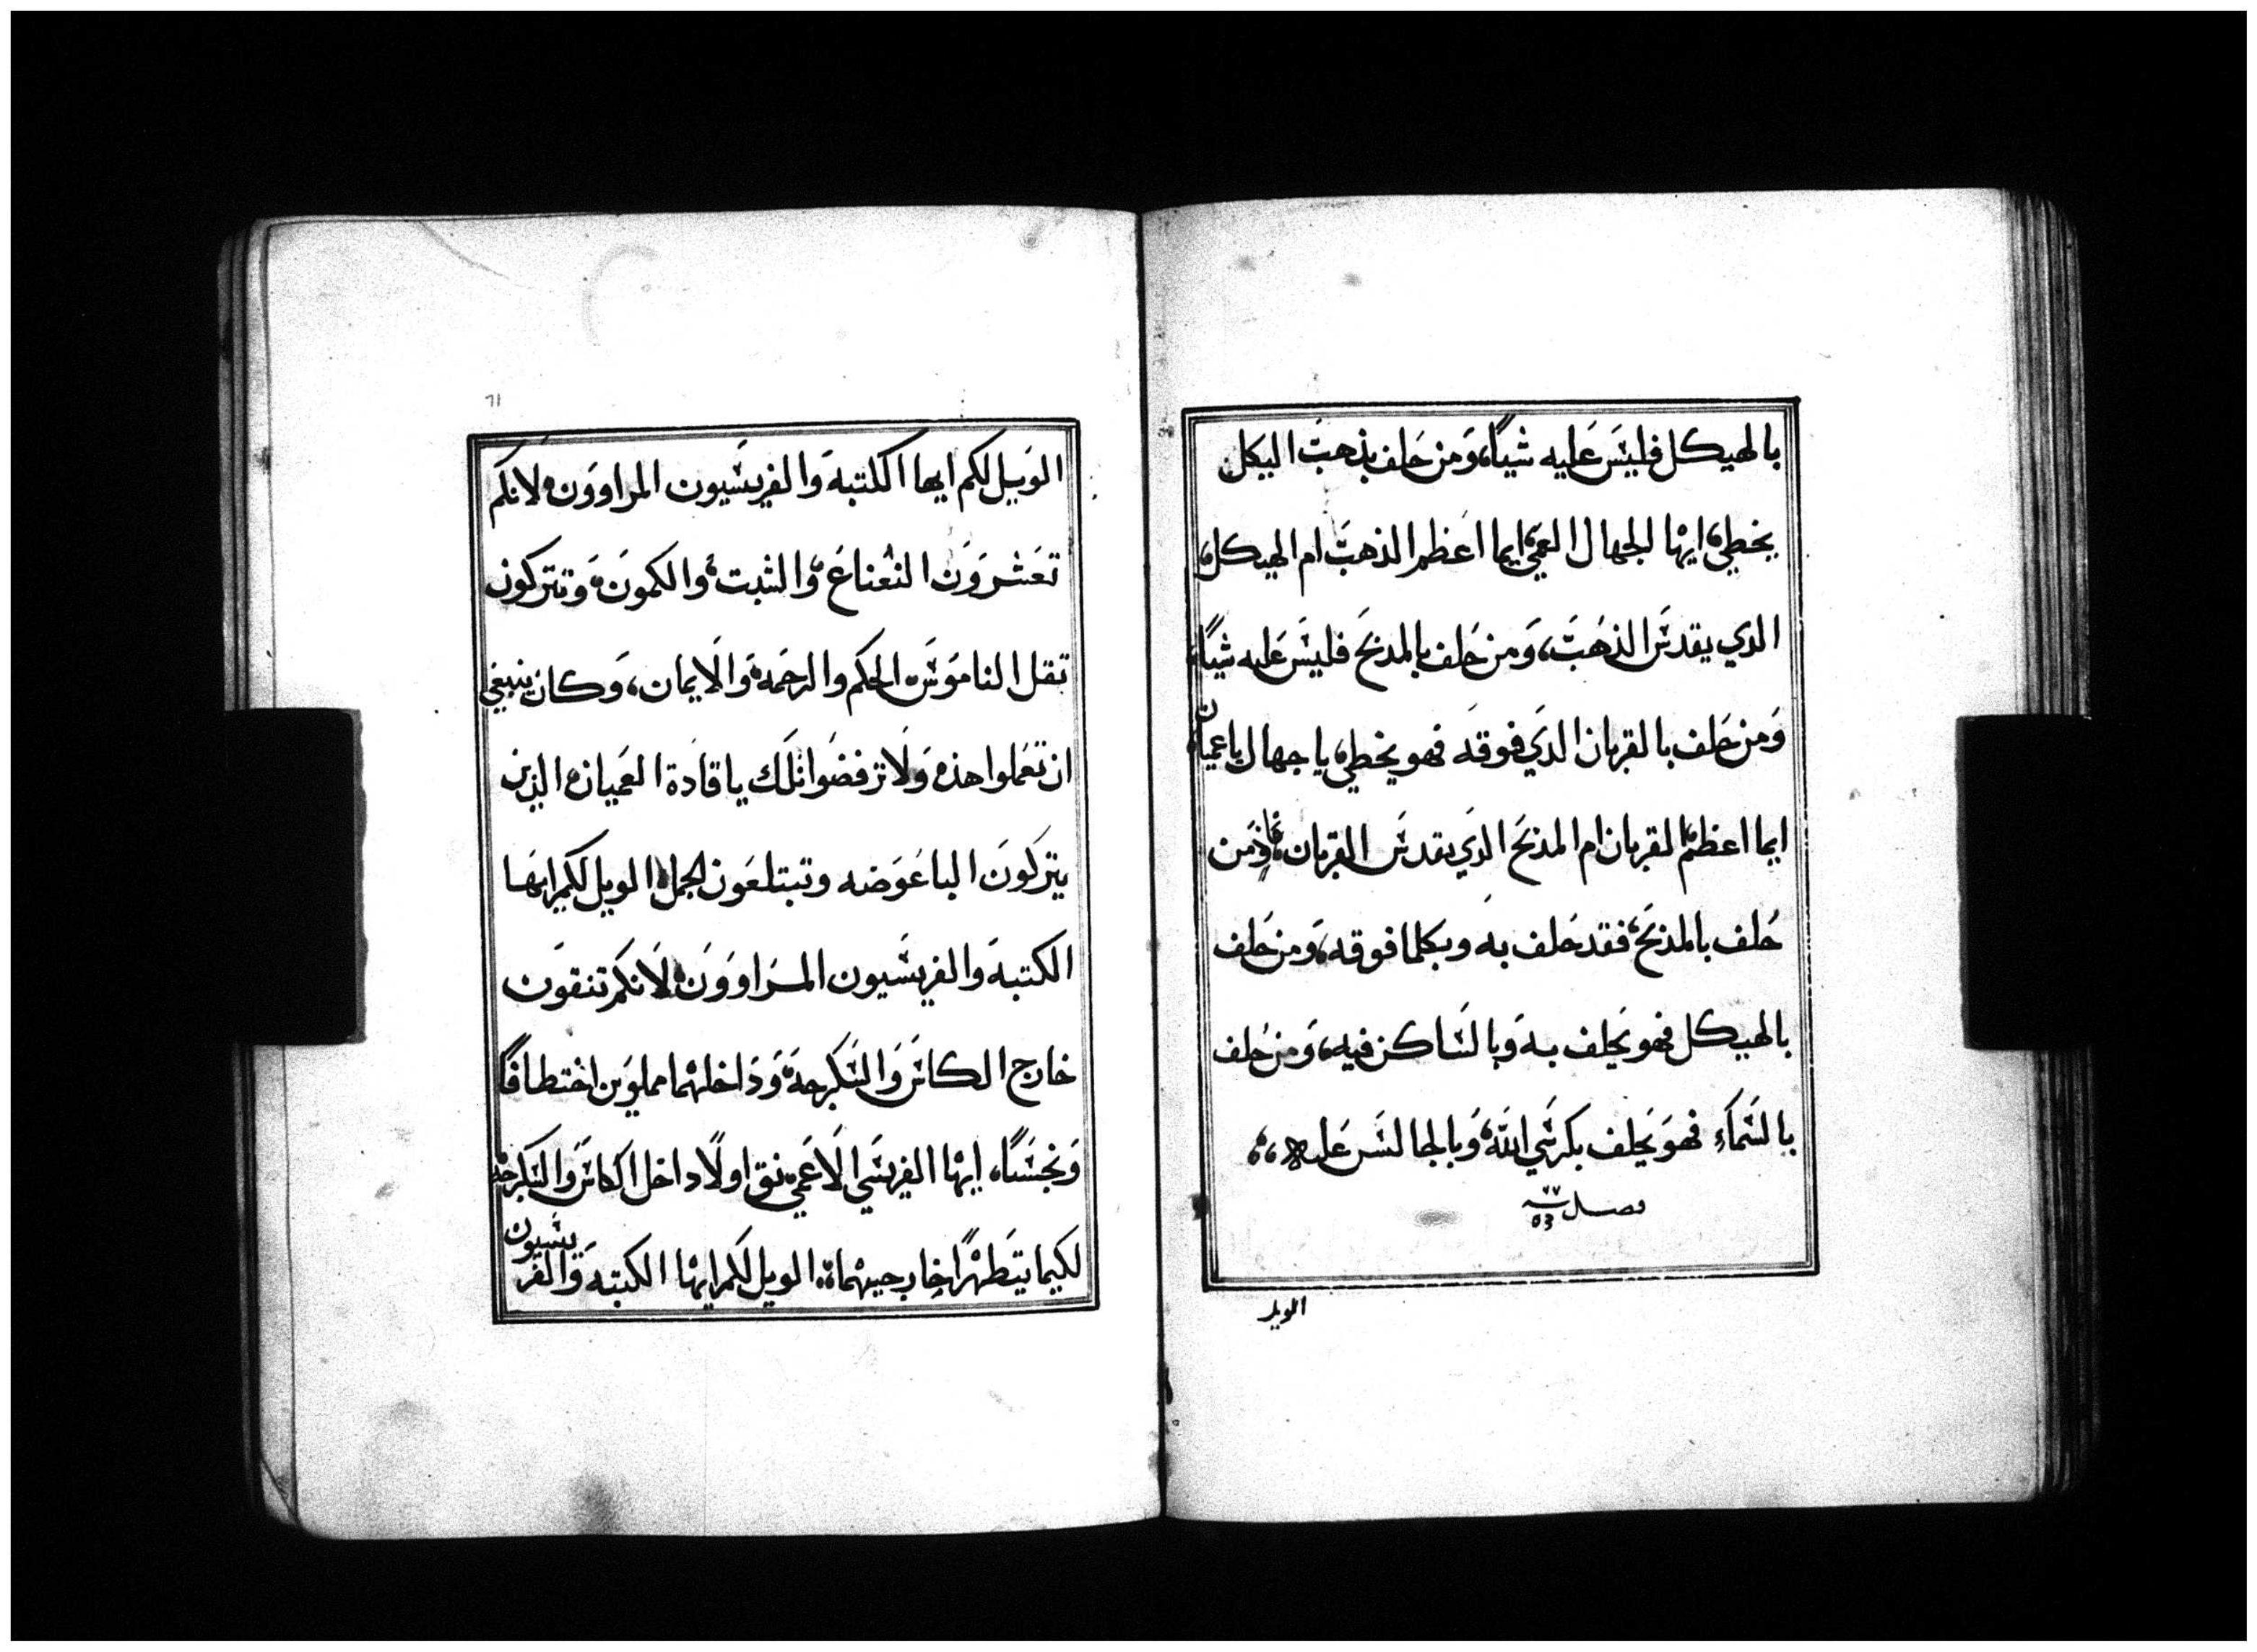 بالهيكل فليسَ عَليه شياً، وَمن حَلف بذهبَ اليكل
يخطي، ايها الجهال العمي، ايما اعَظم الذهبَ ام الهيكل،
الدي يقدسَ الذهبَ، وَمن حَلف بالمدبحَ فليسَ عَليه شياً،
وَمن حَلف بالقربان الدَي فوقه فهو يخطي، يا جهال يا عميان
ايما اعظم القربان ام المذبحَ الدَي يقدسَ القربان، فمن
حَلف بالمذبحَ، فقد حَلف به وبكلما فوقه، وَمن حَلف
بالهيكل فهو يَحلف بهَ وَبالسَاكن فيه، وَمن حَلف
بالسَماَءِ فهوَ يَحلف بكرسَي اللهَ، وَبالجالسَ عَليه،،
فصل ٧٧
٥٣
الويل
٦١
الوَيل لكم ايها الكتبهَ وَالفريسَيون المراووَن، لانكمَ
تعَشرَوَن النعناعَ، وَالشبت، وَالكمونَ، وَتتركون
ثقل الناموَسَ، الحَكم والرحَمهَ، وَالاَيمان، وَكان ينبغي
ان تعَملوا هذه، وَلا ترفضَوا تلَك يا قادَة العَميان، الدَين
يتركَونَ الباعَوَضه وتبتلعَون الجمل، الويل لكم ايهَا
الكتبهَ وَالفريسَيون المرَاووَن، لاَنكم تنقون
خارج الكاسَ وَالسَكرجهَ، وَدَاخلهما مملوَين اختطافاً
وَنجسَاً، ايها الفريسَي الاَعَمي، نق اولاً داخل الكاسَ وَالسَكرجه
لكيما يتَطهراً خارجيهما، الويل لكم ايها الكتبهَ وَالفريسَيون